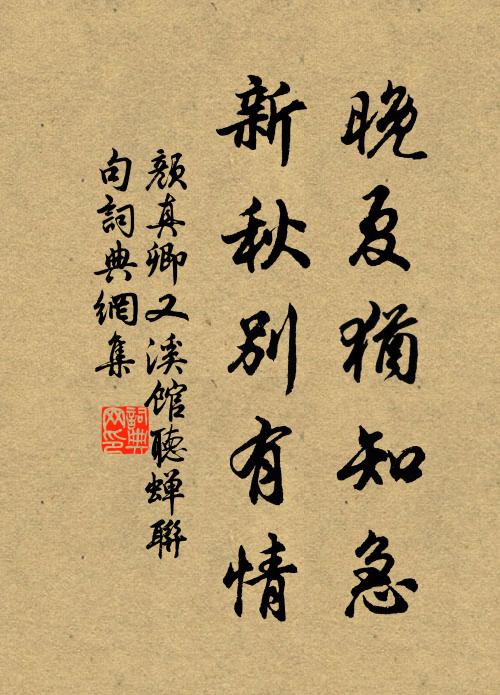 晚夏猶知急
新秋別有情
顏真卿又溪館聽蟬聯
句詞典網集
詞典网印